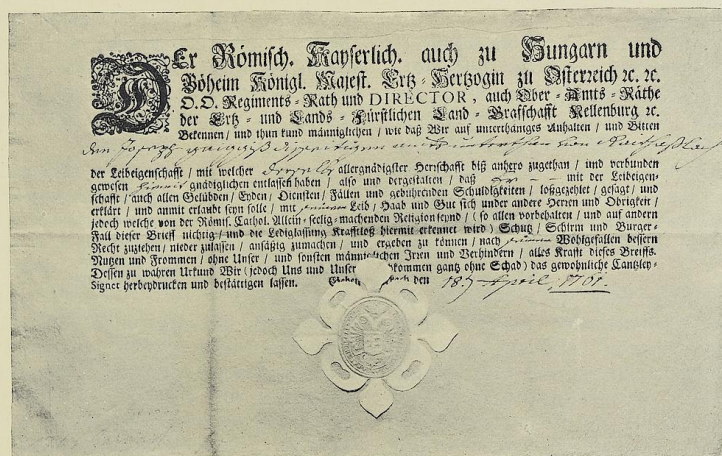 DEr Römisch. Kayserlich. auch zu Hungarn und
Böheim Königl. Majest. Ertz-Hertzogin zu Österreich ꝛc. ꝛc.
O. O. Regiments-Rath und DIRECTOR, auch Ober-Amts-Räthe
der Ertz- und Lands-Fürstlichen Land-Graffschafft Nellenburg ꝛc.
Bekennen / und thun kund männiglichen / wie daß Wir auf unterthäniges Anhalten / und Bitten
den Joseph
der Leibeigenschafft / mit welcher derselbe allergnädigster Herrschafft biß anhero zugethan / und verbunden
gewesen hiemit gnädiglichen entlassen haben / also und dergestalten / daß er mit der Leibeigen-
schafft / auch allen Gelübden / Eyden / Diensten / Fällen und gebührenden Schuldigkeiten / loßgezehlt / gesagt / und
erklärt / und anmit erlaubt seyn solle / mit seinem Leib / Haab und Gut sich under andere Herren und Obrigkeit /
jedoch welche von der Römis. Cathol. Allein-seelig-machenden Religion seynd / (so allen vorbehalten / und auf andern
Fall dieser Brieff nichtig / und die Ledigsassung Krafftloß hiermit erkennet wird) Schutz / Schirm und Burger-
Recht zuziehen / nieder zulassen / ansäßig zumachen / und ergeben zu können / nach seinem Wohlgefallen bessern
Nutzen und Frommen / ohne Unser / und sonsten männiglichen Irren und Verhindern / alles Krafft dieses Brieffs.
Dessen zu wahren Urkund Wir (jedoch Uns und Unser kommen gantz ohne Schad) das gewöhnliche Cantzley-
Signet herbeydrucken und bestättigen lassen. den 18. April